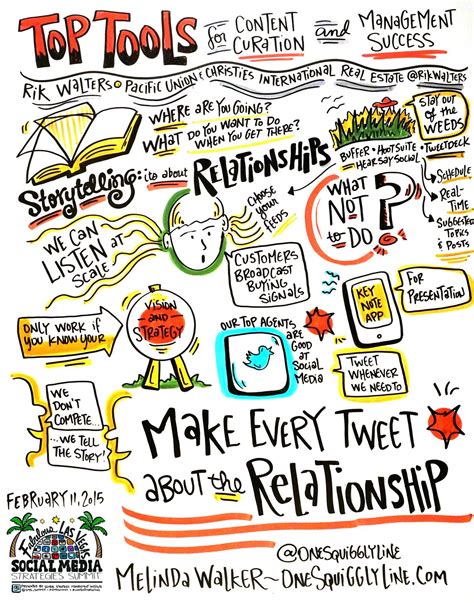 TOP TOOLS for CONTENT CURATION and MANAGEMENT SUCCESS
RIK WALTERS • PACIFIC UNION & CHRISTIES INTERNATIONAL REAL ESTATE @RIKWALTERS
WHERE ARE YOU GOING?
WHAT DO YOU WANT TO DO
WHEN YOU GET THERE?
STAY OUT
OF THE
WEEDS
Storytelling: its about RELATIONSHIPS
BUFFER • HOOTSUITE • TWEETDECK
HEARSAY SOCIAL
SCHEDULE
REAL-
TIME
SUGGESTED
TOPICS &
POSTS
WE CAN
LISTEN AT
SCALE
CHOOSE
YOUR
FEEDS
WHAT
NOT
to DO?
CUSTOMERS
BROADCAST
BUYING
SIGNALS
KEY
NOTE
APP
FOR
PRESENTATION
ONLY WORK IF
YOU KNOW YOUR
VISION
AND
STRATEGY
OUR TOP AGENTS
ARE
GOOD
AT
SOCIAL
MEDIA
TWEET
WHENEVER
WE NEED TO
WE
DON'T
COMPETE...
...WE TELL
THE STORY!
MAKE EVERY TWEET
ABOUT the RELATIONSHIP
FEBRUARY 11, 2015
FABULOUS LAS VEGAS
SOCIAL MEDIA
STRATEGIES SUMMIT
@ONESQUIGGLYLINE
MELINDA WALKER ~ ONESQUIGGLYLINE.COM